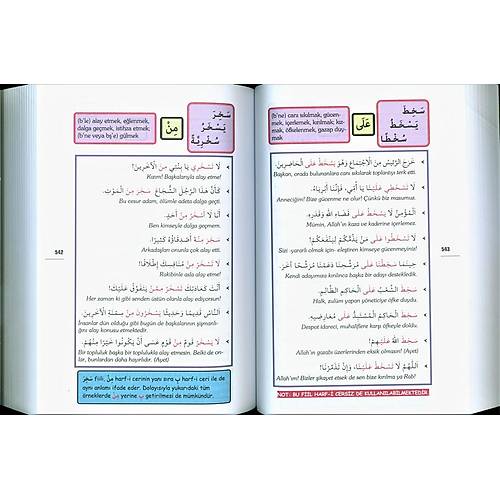 (b'le) alay etmek, eğlenmek,
dalga geçmek, istihza etmek;
(b'ne veya bş'e) gülmek
مِنْ
سَخِرَ
يَسْخَرُ
سُخْرِيَةً
لَا تَسْخَرِي يَا بِنْتِي مِنَ الْآخَرِينَ!
Kızım! Başkalarıyla alay etme!
كَأَنَّ هَذَا الرَّجُلَ الشُّجَاعَ سَخِرَ مِنَ الْمَوْتِ.
Bu cesur adam, ölümle adeta dalga geçti.
أَنَا لَا أَسْخَرُ مِنْ أَحَدٍ.
Ben kimseyle dalga geçmem.
سَخِرَ مِنْهُ أَصْدِقَاؤُهُ كَثِيرًا.
Arkadaşları onunla çok alay etti.
لَا تَسْخَرْ مِنْ مُنَافِسِكَ إِطْلَاقًا!
Rakibinle asla alay etme!
أَنْتَ كَعَادَتِكَ تَسْخَرُ مِمَّنْ يَتَفَوَّقُ عَلَيْكَ!
Her zaman ki gibi senden üstün olanla alay ediyorsun!
النَّاسُ قَدِيمًا وَحَدِيثًا يَسْخَرُونَ مِنْ سِمْنَةِ الْآخَرِينَ.
İnsanlar dün olduğu gibi bugün de başkalarının şişmanlığını alay konusu etmektedir.
لَا يَسْخَرْ قَومٌ مِنْ قَوْمٍ عَسَى أَنْ يَكُونُوا خَيْرًا مِنْهُمْ.
Bir topluluk başka bir toplulukla alay etmesin. Belki de onlar, bunlardan daha hayırlıdır. (Ayet)
سَخِرَ fiili, مِنْ harf-i cerinin yanı sıra بِ harf-i ceri ile de
aynı anlamı ifade eder. Dolayısıyla yukarıdaki tüm
örneklerde مِنْ yerine بِ getirilmesi de mümkündür.
542
(b'ne) canı sıkılmak, gücenmek, içerlemek, kırılmak; kızmak, öfkelenmek, gazap duymak
عَلَى
سَخِطَ
يَسْخَطُ
سُخْطًا
خَرَجَ الرَّئِيسُ مِنَ الْاِجْتِمَاعِ وَهُوَ يَسْخَطُ عَلَى الْحَاضِرِينَ.
Başkan, orada bulunanlara canı sıkılarak toplantıyı terk etti.
لَا تَسْخَطِي عَلَيْنَا يَا أُمِّي، فَإِنَّنَا أَبْرِيَاءُ.
Anneciğim! Bize gücenme ne olur! Çünkü biz masumuz.
الْمُؤْمِنُ لَا يَسْخَطُ عَلَى قَضَاءِ اللهِ وَقَدَرِهِ.
Mümin, Allah'ın kaza ve kaderine içerlemez.
لَا تَسْخَطُوا عَلَى مَنْ يَذُمُّكُمْ لِيَنْفَعَكُمْ!
Sizi yararlı olmak için eleştiren kimseye gücenmeyin!
حِينَمَا سَخِطْنَا عَلَى مُرَشَّحِنَا دَعَمْنَا مُرَشَّحًا آخَرَ.
Kendi adayımıza kırılınca başka bir adayı destekledik.
سَخِطَ الشَّعْبُ عَلَى الْحَاكِمِ الظَّالِمِ.
Halk, zulüm yapan yöneticiye öfke duydu.
سَخِطَ الْحَاكِمُ الْمُسْتَبِدُّ عَلَى مُعَارِضِيهِ.
Despot idareci, muhaliflere karşı öfkeyle doldu.
سَخِطَ اللهُ عَلَيْهِمْ!
Allah'ın gazabı üzerlerinden eksik olmasın! (Ayet)
اللَّهُمَّ لَا تَسْخَطْ عَلَيْنَا، وَإِنْ تَذَمَّرْنَا!
Allah'ım! Bizler şikayet etsek de sen bize kırılma ya Rab!
NOT: BU FİİL HARF-İ CERSİZ DE KULLANILABİLMEKTEDİR.
543